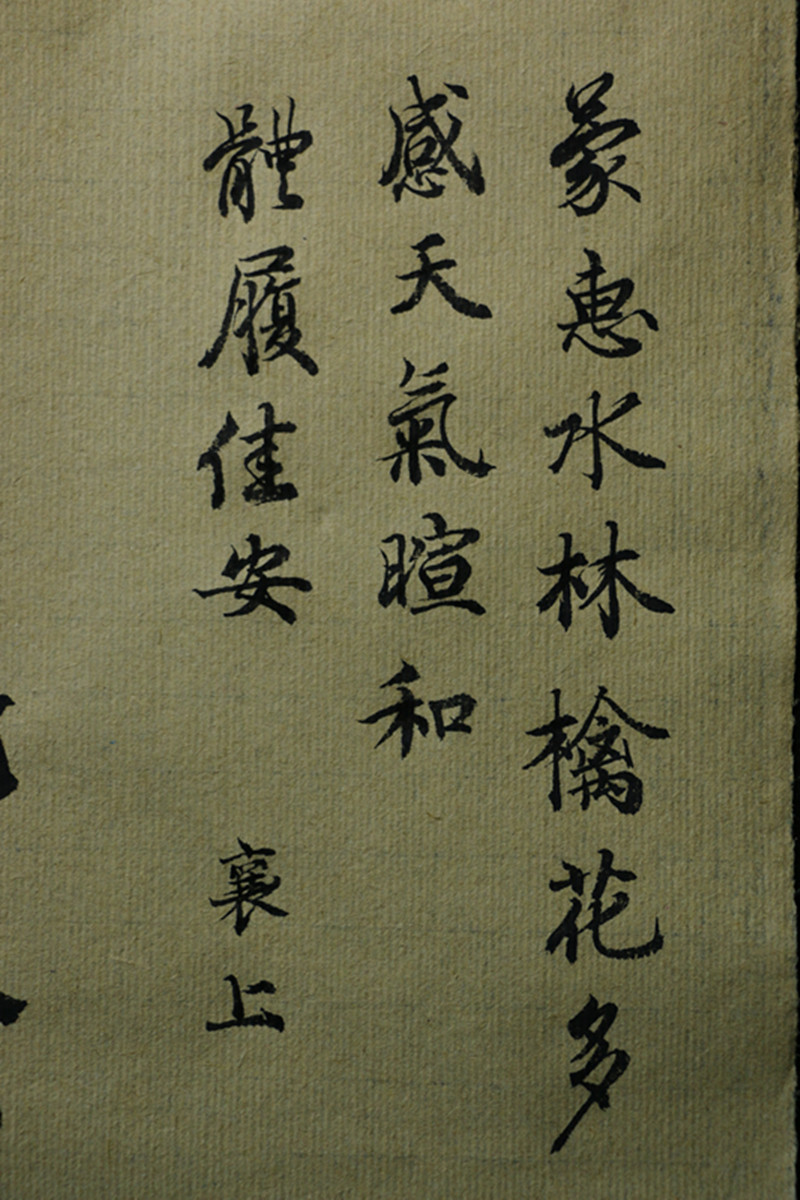 蒙惠水林檎花多
感天氣暄和
體履佳安　襄上